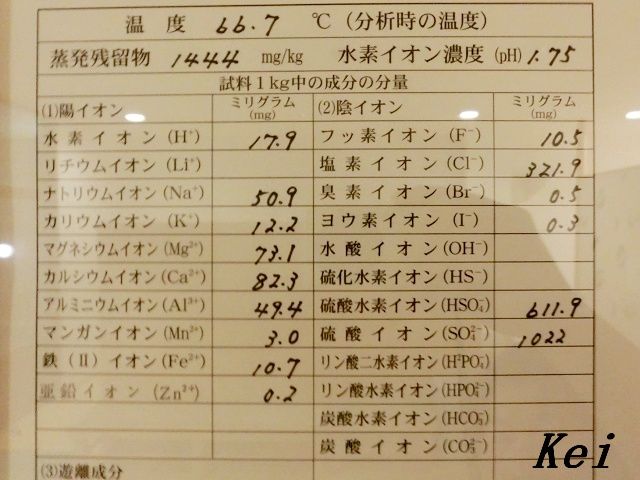 温度 66.7 ℃ (分析時の温度)
蒸発残留物 1444 mg/kg 水素イオン濃度 (pH) 1.75
試料1kg中の成分の分量
(1)陽イオン ミリグラム (mg) (2)陰イオン ミリグラム (mg)
水素イオン(H⁺) 17.9 フッ素イオン(F⁻) 10.5
リチウムイオン(Li⁺) 塩素イオン(Cl⁻) 321.9
ナトリウムイオン(Na⁺) 50.9 臭素イオン(Br⁻) 0.5
カリウムイオン(K⁺) 12.2 ヨウ素イオン(I⁻) 0.3
マグネシウムイオン(Mg²⁺) 73.1 水酸イオン(OH⁻)
カルシウムイオン(Ca²⁺) 82.3 硫化水素イオン(HS⁻)
アルミニウムイオン(Al³⁺) 49.4 硫酸水素イオン(HSO₄⁻) 611.9
マンガンイオン(Mn²⁺) 3.0 硫酸イオン(SO₄²⁻) 1022
鉄(Ⅱ)イオン(Fe²⁺) 10.7 リン酸二水素イオン(H²PO₄⁻)
亜鉛イオン(Zn²⁺) 0.2 リン酸水素イオン(HPO₄²⁻)
炭酸水素イオン(HCO₃⁻)
炭酸イオン(CO₃²⁻)
(3)遊離成分
Kei